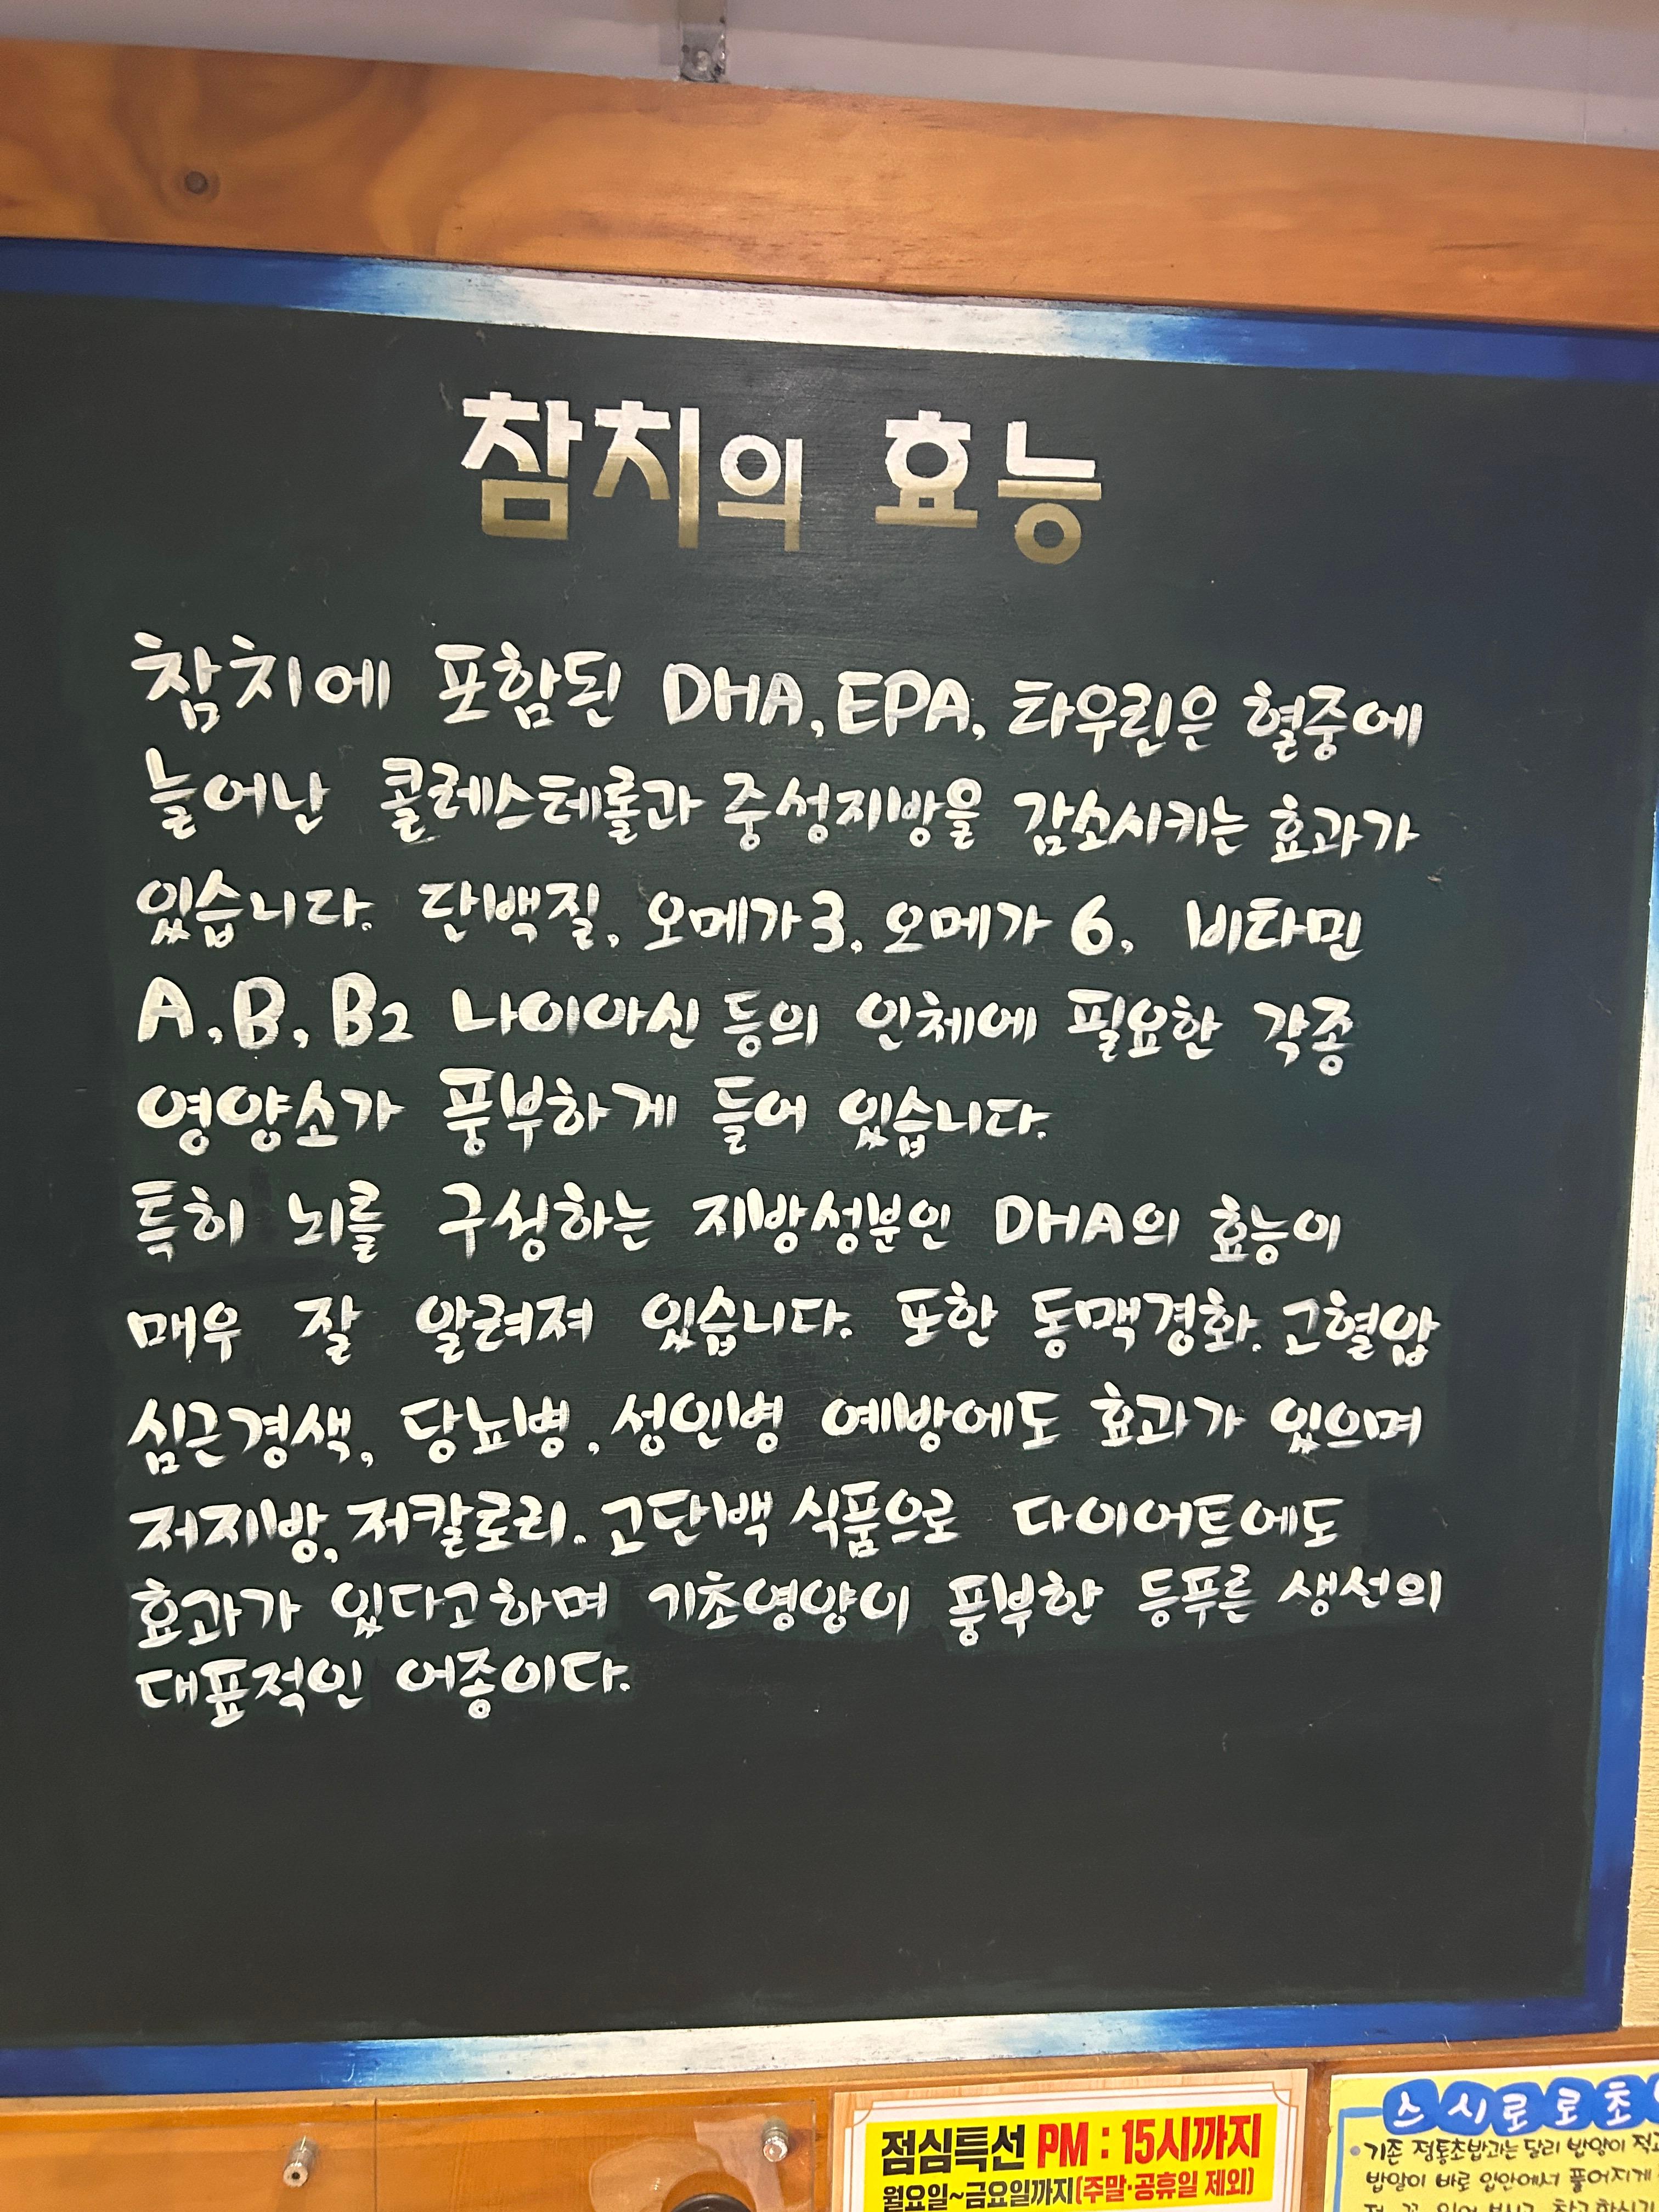 참치의 효능
참치에 포함된 DHA, EPA, 타우린은 혈중에
늘어난 콜레스테롤과 중성지방을 감소시키는 효과가
있습니다. 단백질, 오메가3, 오메가 6, 비타민
A, B, B2 나이아신 등의 인체에 필요한 각종
영양소가 풍부하게 들어 있습니다.
특히 뇌를 구성하는 지방성분인 DHA의 효능이
매우 잘 알려져 있습니다. 또한 동맥경화, 고혈압
심근경색, 당뇨병, 성인병 예방에도 효과가 있으며
저지방, 저칼로리, 고단백 식품으로 다이어트에도
효과가 있다고하며 기초영양이 풍부한 등푸른 생선의
대표적인 어종이다.
점심특선 PM : 15시까지
월요일~금요일까지(주말·공휴일 제외)
스시로로초
•기존 정통초밥과는 달리 밥양이
밥알이 바로 입안에서 풀어지게